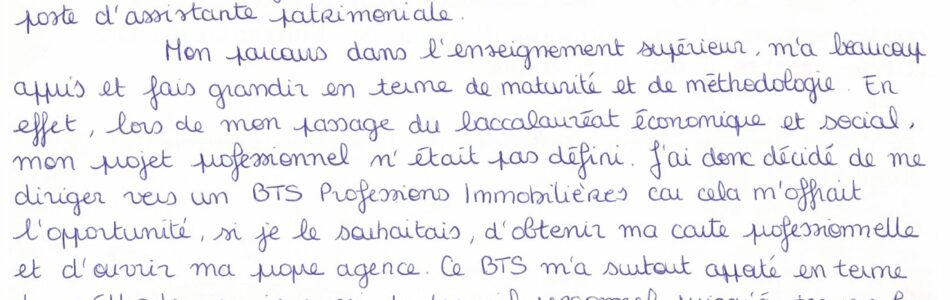 poste d'assistante patrimoniale.
Mon parcours dans l'enseignement supérieur, m'a beaucoup
appris et fais grandir en terme de maturité et de méthodologie. En
effet, lors de mon passage du baccalauréat économique et social,
mon projet professionnel n'était pas défini. J'ai donc décidé de me
diriger vers un BTS Professions Immobilières car cela m'offrait
l'opportunité, si je le souhaitais, d'obtenir ma carte professionnelle
et d'ouvrir ma propre agence. Ce BTS m'a surtout apporté en terme